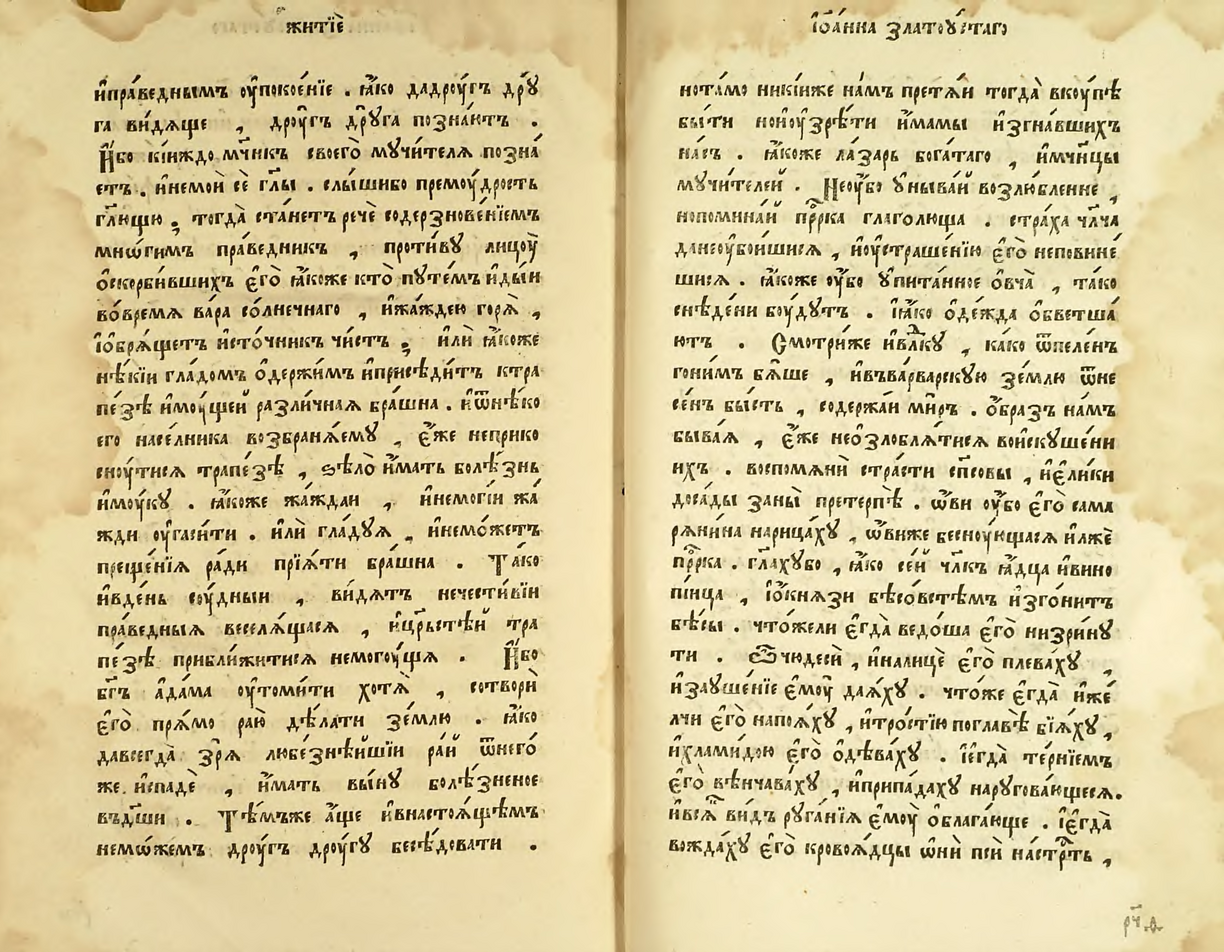 житїѐ
ѝпра́веднымъ ѹ҆покое́нїе . ꙗ҆́ко дадрꙋ́гъ дрꙋ́
га ви́дѧще , дрꙋ́гъ дрꙋ́га позна́ютъ .
И҆́бо кі́иждо мч҃никъ своего̀ мꙋчи́телѧ позна́
етъ . и҆немо́й се́ гл҃ы . слы́шибо премꙋ́дрость
гл҃ющꙋю ; тогда̀ ста́нетъ речѐ содерзнове́нїемъ
мнѡ́гимъ пра́ведникъ , проти́вꙋ лицꙋ̀
ѡ҆скорби́вшихъ є҆го̀ ꙗ҆́коже кто̀ пꙋте́мъ и҆ды́и
во́времѧ ва́ра со́лнечнаго , и҆жа́ждею горѧ̀ ,
і҆ѡбрѧ́щетъ и҆сто́чникъ чи́стъ ; и҆лѝ ꙗ҆́коже
нѣ́кїи гла́домъ ѻ҆держи́мъ и҆присѣди́тъ ктра
пе́зѣ и҆мꙋ́щей разли́чнаѧ бра́шна . и҆ѿнѣ́ко
его насе́лника возбранѧ́емꙋ , є҆́же неприко
снꙋ́тисѧ трапе́зѣ , ѕѣло̀ и҆́мать болѣ́знь
и҆мꙋ́кꙋ . ꙗ҆́коже жа́ждаи , и҆немоги́и жа́
жди ѹ҆гаси́ти . и҆лѝ гла́дꙋѧ , и҆немо́жетъ
преще́нїѧ ра́ди прїѧ́ти бра́шна . Та́ко
и҆вде́нь сꙋ́дныи , ви́дѧтъ нечести́вїи
пра́ведныѧ веселѧ́щасѧ , и҆цр҃ьстѣ́й тра
пе́зѣ прибли́житисѧ немогꙋ́щѧ . И҆́бо
бг҃ъ а҆да́ма ѹ҆томи́ти хотѧ̀ , сотворѝ
є҆го̀ прѧ́мо раю̀ дѣ́лати зе́млю . ꙗ҆́ко
давсегда̀ зрѧ̀ любе́знѣйшїи ра́й ѿнего́
же и҆спадѐ , и҆́мать вы́нꙋ болѣ́зненое
въдш҃и . Тѣ́мъже а҆́ще и҆внастоѧ́щѣмъ
немѡ́жемъ дрꙋ́гъ дрꙋ́гꙋ бесѣ́довати .
і҆ѡа́нна златоꙋ́стагѡ
нота́мо никі́иже на́мъ претѧ́и тогда̀ вкꙋ́пѣ
бы́ти нои҆ꙋзрѣ́ти и҆́мамы и҆згна́вшихъ
на́съ . ꙗ҆́коже ла́зарь бога́таго , и҆мч҃ицы
мꙋчи́телей . Неѹ҆бо ᲂу҆ныва́й возлю́бленне ,
нопомина́й прⷪ҇рка глаго́люща . стра́ха чл҃ча
данеѹбои́шисѧ , и҆ѹстраше́нїю є҆го̀ неповине́
шисѧ . ꙗ҆́коже ѹ҆́бо ᲂу҆пита́нное ѻ҆вча̀ , та́ко
снѣ́дени бꙋ́дꙋтъ . і҆ꙗ҆́ко ѻ҆де́жда ѡ҆бветша́
ютъ . Смотри́же и҆влⷣкꙋ , ка́ко ѿпеле́нъ
гони́мъ бѧ́ше , и҆въва́рварскꙋю зе́млю ѿне
се́нъ бы́сть , содержа́й ми́ръ . ѻ҆́бразъ на́мъ
быва́ѧ , є҆́же неѡ҆злоблѧ́тисѧ вои҆скꙋше́ни
ихъ . воспомѧнѝ стра́сти сп҃совы , и҆є҆ли́ки
доса́ды заны̀ претерпѣ̀ . ѡ҆́ви ѹ҆́бо є҆го̀ сама
рѧни́на нарица́хꙋ , ѡ҆́виже беснꙋ́ющасѧ и҆лжѐ
прⷪ҇рка . гл҃ахꙋбо , ꙗ҆́ко се́й чл҃къ ꙗ҆дца и҆вино
пі́ица , і҆ѡкнѧ́зи бѣсо́встѣмъ и҆зго́нитъ
бѣ́сы . что́жели є҆гда̀ ведо́ша є҆го̀ низри́нꙋ
ти . Ѽчюдесѝ , и҆налицѐ є҆го̀ плева́хꙋ ,
и҆заꙋше́нїе є҆мꙋ̀ даѧ́хꙋ . что́же є҆гда̀ и҆же́
лчи є҆го̀ напоѧ́хꙋ , и҆тро́стїю поглавѣ̀ бїѧ́хꙋ ,
и҆хлами́дою є҆го̀ ѻ҆дѣва́хꙋ . і҆є҆гда̀ те́рнїемъ
є҆го̀ вѣнчава́хꙋ , и҆припа́дахꙋ нарꙋгова́ющесѧ .
и҆всѧ́къ ви́дъ рꙋга́нїѧ є҆мꙋ̀ ѡ҆блага́юще . і҆є҆гда̀
вожда́хꙋ є҆го̀ кровоѧ́дцы ѡ҆нѝ псѝ настрⷭ҇ть ,